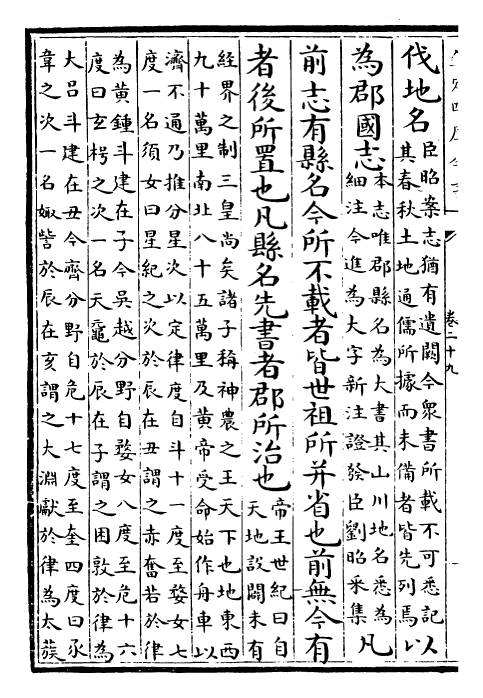 欽定四庫全書
卷二十九
伐地名臣昭案志猶有遺闕今衆書所載不可悉記以
其春秋土地通儒所據而未備者皆先列焉以
為郡國志本志唯郡縣名為大書其山川地名悉為
細注今進為大字新注證發臣劉昭采集凡
前志有縣名今所不載者皆世祖所并省也前無今有
者後所置也凡縣名先書者郡所治也帝王世紀曰自
天地設闢未有
經界之制三皇尚矣諸子稱神農之王天下也地東西
九十萬里南北八十五萬里及黄帝受命始作舟車以
濟不通乃推分星次以定律度自斗十一度至婺女七
度一名須女曰星紀之次於辰在丑謂之赤奮若於律
為黄鍾斗建在子今吳越分野自婺女八度至危十六
度曰玄枵之次一名天黿於辰在子謂之困敦於律為
大吕斗建在丑今齊分野自危十七度至奎四度曰豕
韋之次一名娵訾於辰在亥謂之大淵獻於律為太蔟